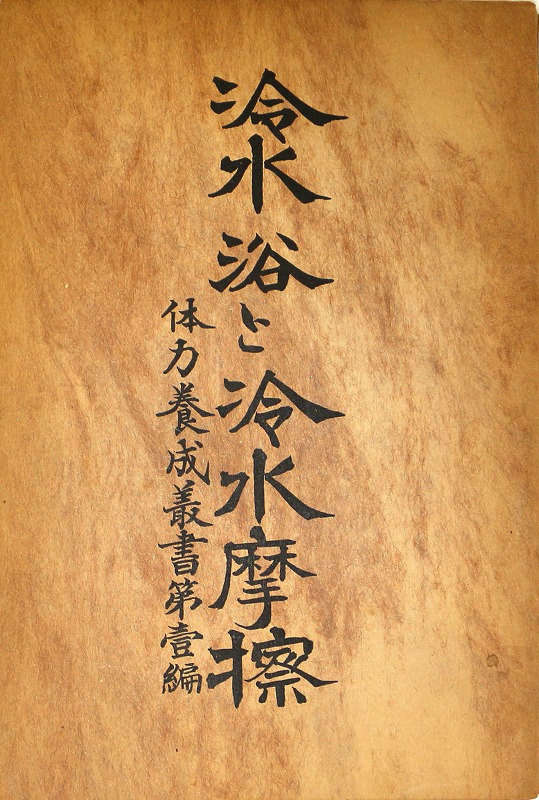 冷水浴と冷水摩擦
体力養成叢書第壹編